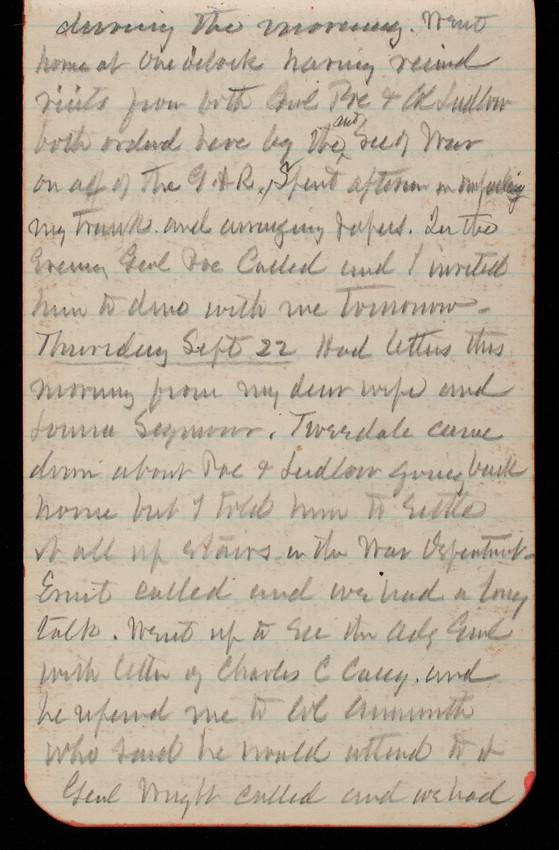 during the morning. Went
home at One oclock having recind
visits from both Genl Poe & Col Ludlow
both ordered here by the Sec of War
on a/c of the G.A.R., Spent afternoon in
my trunk. and arranging papers. In the
Evening Genl Poe Called and I invited
him to dine with me tomorrow-
Thursday Sept 22 Had letters this
morning from my dear wife and
Seymour. Tweedale came
down about Poe & Ludlow going back
home but I told him to settle
it all up stairs in the War Department-
called and we had a long
talk. Went up to see the Adj Genl
with letter of Charles C Casey. and
he refered me to Col
who said he would attend to it
Genl Wright called and we had